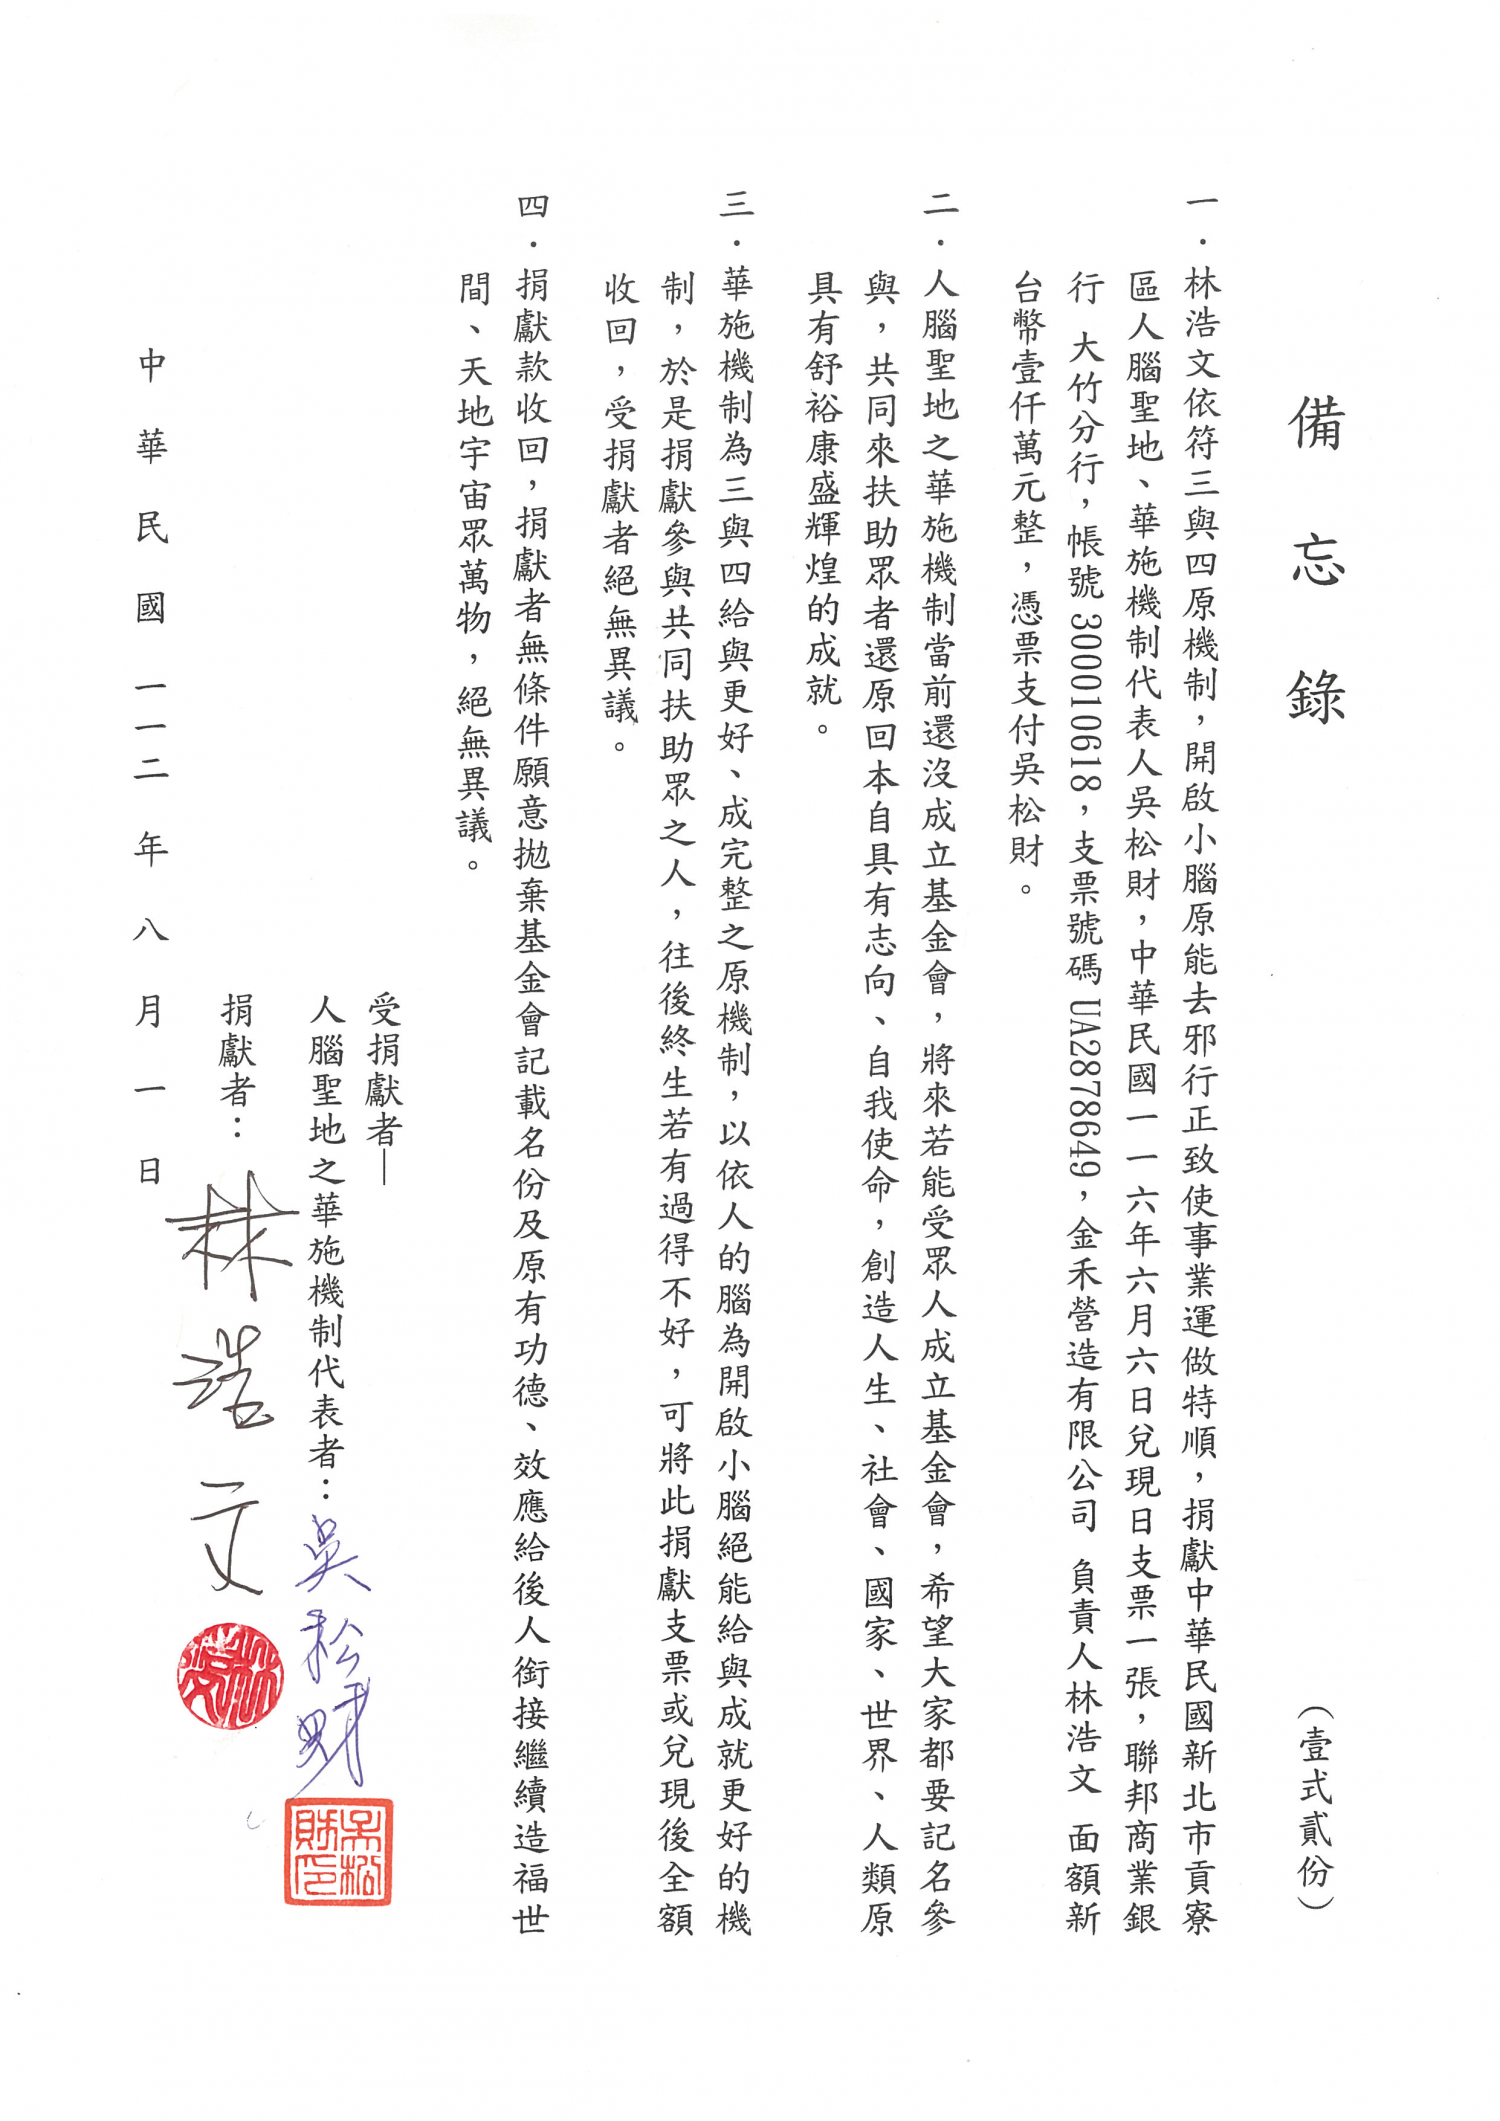 備忘錄
（壹式貳份）
一．林浩文依符三與四原機制，開啟小腦原能去邪行正致使事業運做特順，捐獻中華民國新北市貢寮
區人腦聖地、華施機制代表人吳松財，中華民國一一六年六月六日兌現日支票一張，聯邦商業銀
行 大竹分行，帳號300010618，支票號碼UA2878649，金禾營造有限公司 負責人林浩文 面額新
台幣壹仟萬元整，憑票支付吳松財。
二．人腦聖地之華施機制當前還沒成立基金會，將來若能受眾人成立基金會，希望大家都要記名參
與，共同來扶助眾者還原回本自具有志向、自我使命，創造人生、社會、國家、世界、人類原
具有舒裕康盛輝煌的成就。
三．華施機制為三與四給與更好、成完整之原機制，以依人的腦為開啟小腦絕能給與成就更好的機
制，於是捐獻參與共同扶助眾之人，往後終生若有過得不好，可將此捐獻支票或兌現後全額
收回，受捐獻者絕無異議。
四．捐獻款收回，捐獻者無條件願意拋棄基金會記載名份及原有功德、效應給後人銜接繼續造福世
間、天地宇宙眾萬物，絕無異議。
受捐獻者—
人腦聖地之華施機制代表者：吳松財
吳松財印
捐獻者：林浩文
中華民國一一二年八月一日